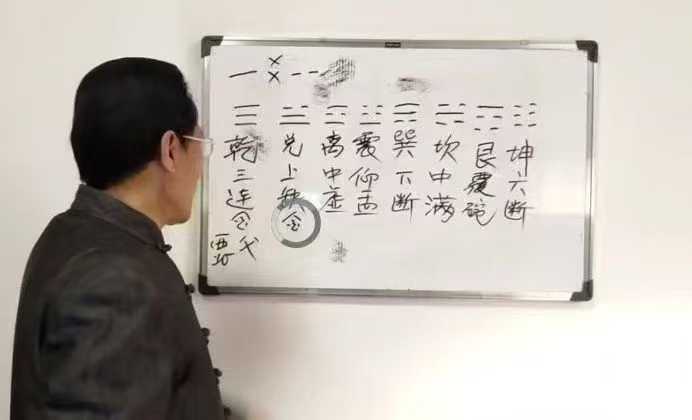 乾三连金父
西北
兑上缺金
离中虚
震仰盂
巽下断
坎中满
艮覆碗
坤六断